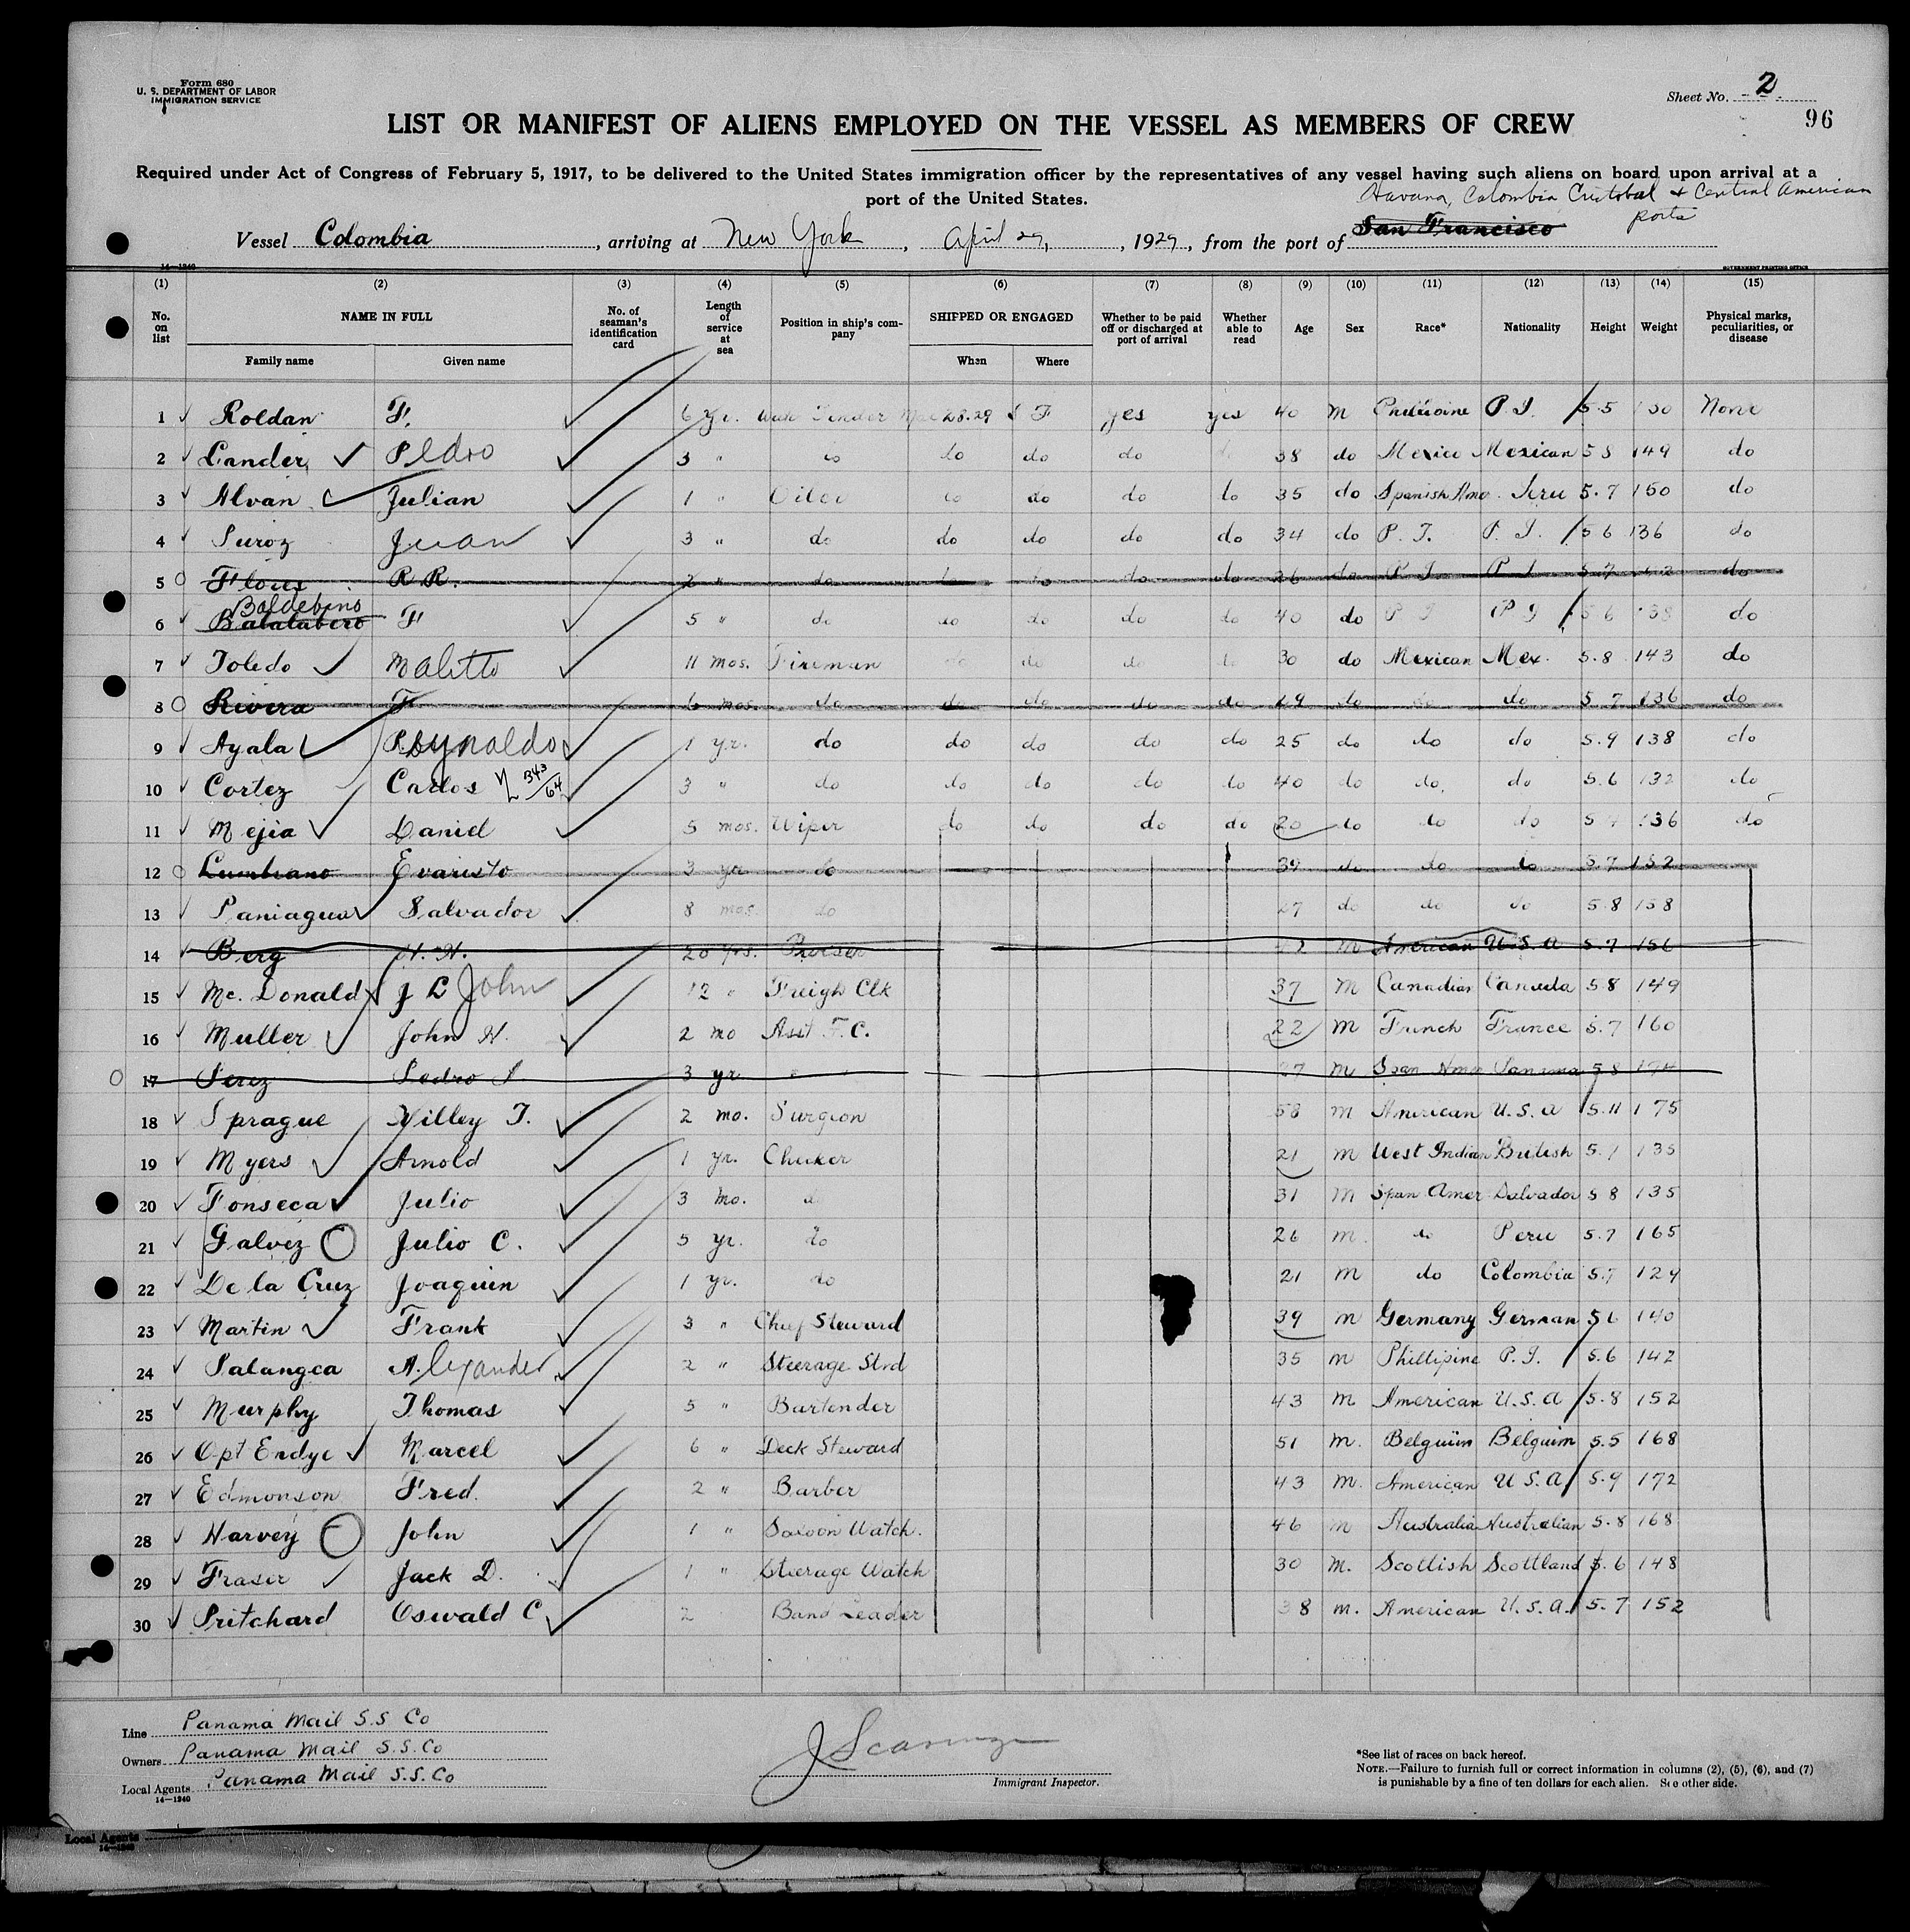 Form 680
U. S. DEPARTMENT OF LABOR
IMMIGRATION SERVICE
Sheet No. 2
96
LIST OR MANIFEST OF ALIENS EMPLOYED ON THE VESSEL AS MEMBERS OF CREW
Required under Act of Congress of February 5, 1917, to be delivered to the United States immigration officer by the representatives of any vessel having such aliens on board upon arrival at a
port of the United States.
Havana, Colombia Cristobal & Central American
ports
Vessel Colombia, arriving at New York, April 29, 1929, from the port of San Francisco
14—1240
GOVERNMENT PRINTING OFFICE
(1) (2) (3) (4) (5) (6) (7) (8) (9) (10) (11) (12) (13) (14) (15)
No. on list NAME IN FULL Family name Given name No. of seaman's identification card Length of service at sea Position in ship's company SHIPPED OR ENGAGED When Where Whether to be paid off or discharged at port of arrival Whether able to read Age Sex Race* Nationality Height Weight Physical marks, peculiarities, or disease
1 Roldan F. 6 yr. Tender Mar 28.29 S F yes yes 40 m P.I. 5.5 130 None
2 Lander Pedro 3 " do do do do 38 do Mexico Mexican 5 8 149 do
3 Alvan Julian 1 " Oiler do do do do 35 do Spanish Amo. Peru 5.7 150 do
4 Juan 3 " do do do do do 34 do P.I. P.I. 5 6 136 do
5 Flores R R. 2 " do do do do do 26 do P I P I 5.7 do
6 Baldebino Balalabero F 5 " do do do do do 40 do P I P I 5 6 138 do
7 Toledo 11 mos. Fireman do do do do 30 do Mexican Mex. 5.8 143 do
8 Rivera F 6 mos. do do do do do 29 do do do 5.7 136 do
9 Ayala Reynaldo 1 yr. do do do do do 25 do do do 5.9 138 do
10 Cortez Carlos 343/64 3 " do do do do do 40 do do do 5.6 132 do
11 Mejia Daniel 5 mos. Wiper do do do do 20 do do do 136 do
12 Lumbrano Evaristo 3 yr do 39 do do do 5.7 152
13 Paniagua Salvador 8 mos. do 27 do do do 5 8 158
14 Berg H. H. 20 yrs. Purser m American U.S.A 5.7 156
15 Mc. Donald J L John 12 " Freigh Clk 37 M Canadian Canada 5 8 149
16 Muller John H. 2 mo Asst F.C. 22 M French France 5.7 160
17 Perez Pedro A. 3 yr " 27 M Span Amer Panama 5 8 174
18 Sprague Yilley T. 2 mo. Surgeon 58 m American U.S.A 5.11 175
19 Myers Arnold 1 yr. Checker 21 m West Indian British 5.7 135
20 Fonseca Julio 3 mo. 31 M Span Amer Salvador 5 8 135
21 Galvez Julio C. 5 yr. do 26 m. do Peru 5.7 165
22 De la Cruz Joaquin 1 yr. do 21 m do Colombia 5.7 129
23 Martin Frank 3 " Chief Steward 39 m Germany German 5 6 140
24 Palangca Alexander 2 " Steerage Strd 35 m Phillipine P.I. 5.6 142
25 Murphy Thomas 5 " Bartender 43 M. American U.S.A 5.8 152
26 Opt Endye Marcel 6 " Deck Steward 51 m. Belguim Belguim 5.5 168
27 Edmonson Fred. 2 " Barber 43 M. American U S.A 5.9 172
28 Harvey John 1 " Saloon Watch. 46 m Australia Australian 5.8 168
29 Fraser Jack D. 1 " Steerage Watch 30 M. Scottish Scottland 5.6 148
30 Pritchard Oswald C 2 Band Leader 38 m. American U.S.A. 5.7 152
Line Panama Mail S.S Co
Owners Panama Mail S.S.Co
Local Agents Panama Mail S.S.Co
14—1240
Immigrant Inspector.
*See list of races on back hereof.
NOTE.—Failure to furnish full or correct information in columns (2), (5), (6), and (7)
is punishable by a fine of ten dollars for each alien. See other side.
Local Agents